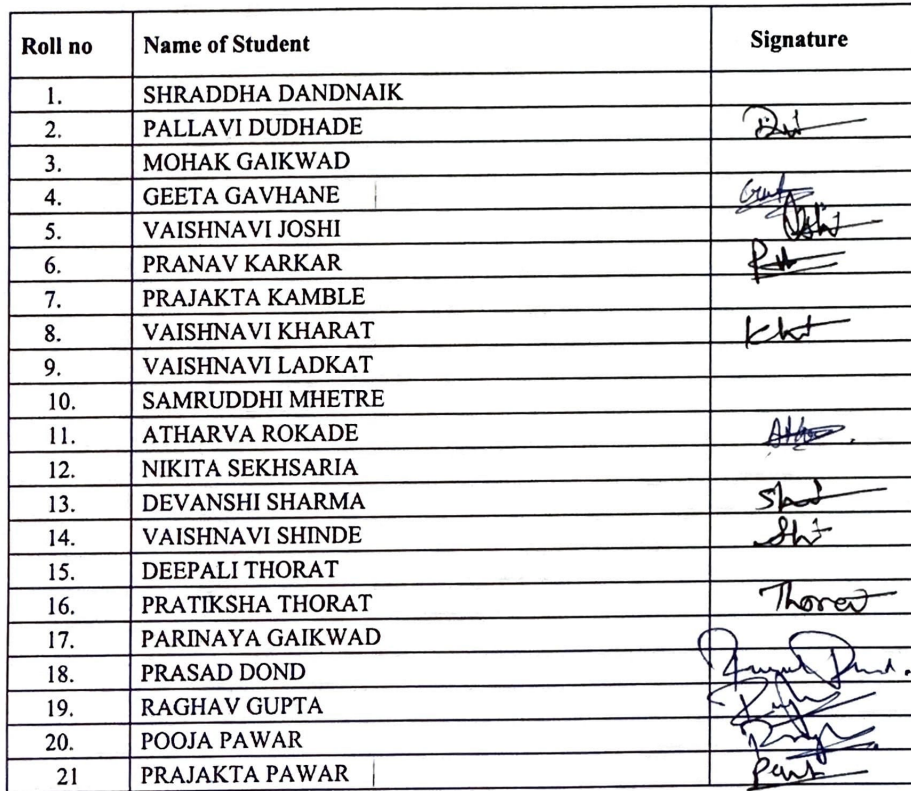 Roll no Name of Student Signature
1. SHRADDHA DANDNAIK
2. PALLAVI DUDHADE
3. MOHAK GAIKWAD
4. GEETA GAVHANE
5. VAISHNAVI JOSHI
6. PRANAV KARKAR
7. PRAJAKTA KAMBLE
8. VAISHNAVI KHARAT
9. VAISHNAVI LADKAT
10. SAMRUDDHI MHETRE
11. ATHARVA ROKADE
12. NIKITA SEKHSARIA
13. DEVANSHI SHARMA
14. VAISHNAVI SHINDE
15. DEEPALI THORAT
16. PRATIKSHA THORAT
17. PARINAYA GAIKWAD
18. PRASAD DOND
19. RAGHAV GUPTA
20. POOJA PAWAR
21 PRAJAKTA PAWAR